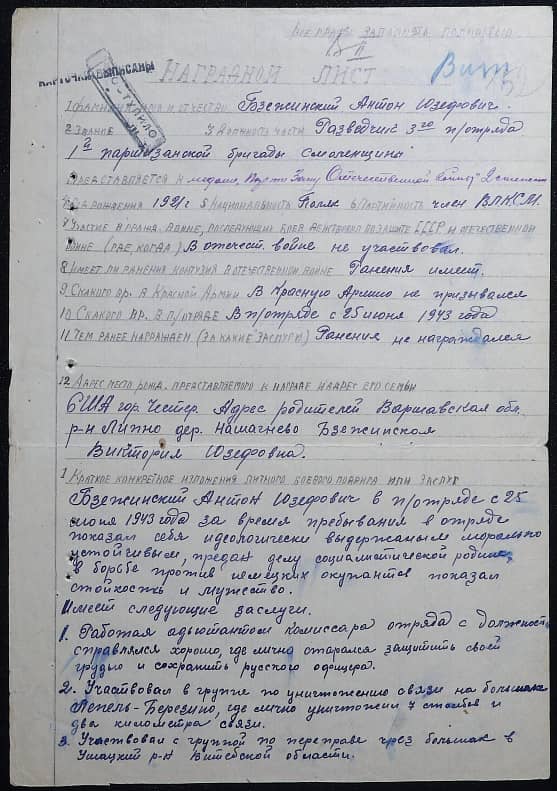 ВИТ
КАРТОЧКИ ВЫПИСАНЫ
НАГРАДНОЙ ЛИСТ
1 Фамилия имя и отчество Бзежинский Антон Юзефович.
2 Звание 3 Должность части Разведчик 3го п/отряда
1й партизанской бригады Смоленщины
Представляется к медали, Отечественной войны" 2 степени
рождения 1921г 5 Национальность Поляк 6 Партийность член ВЛКСМ.
7 Участие в гражд. войне, последующих боев. действиях по защите СССР и отечественной
войне (где, когда) В отечест. войне не участвовал.
8 Имеет ли ранения контузия в отечественной войне Ранения имеет.
9 С какого вр. в Красной Армии В Красную Армию не призывался
10 С какого вр. в п/отряде В п/отряде с 25 июня 1943 года
11 Чем ранее награжден (за какие заслуги) Ранения не награждался
12 Адрес место рожд. представляемого к награде и адрес его семьи
США гор. Честер. Адрес родителей Варшавская обл.
р-н Липно дер. Бзежинском
Виктория Юзефовна.
1 Краткое конкретное изложения личного боевого подвига или заслуг
Бзежинский Антон Юзефович в п/отряде с 25
июня 1943 года за время пребывания в отряде
показал себя идеологически выдержаным морально
устойчивым, предан делу социалистической родине,
в борьбе против немецких окупантов показал
стойкость и мужество.
Имеет следующие заслуги.
1. Работая адъютантом комиссара отряда с должность
справлялся хорошо, где лично старался защитить своей
грудью и сохранить русского офицера.
2. Участвовал в группе по уничтожению связи на большаке
Лепель-Березино, где лично уничтожил 7 столбов и
два километра связи.
3. Участвовал с группой по переправе чрез большак в
Ушацкий р-н Витебской области.